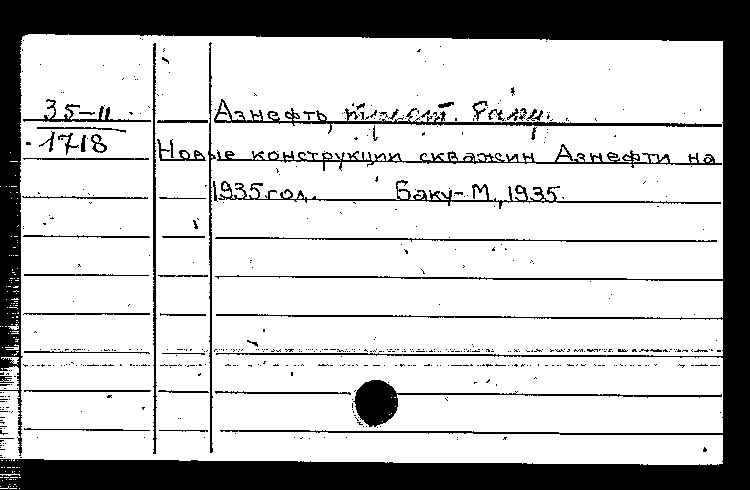 35-11
1718
Азнефть, трест. Баку.
Новые конструкции скважин Азнефти на
1935 год. Баку-М., 1935.